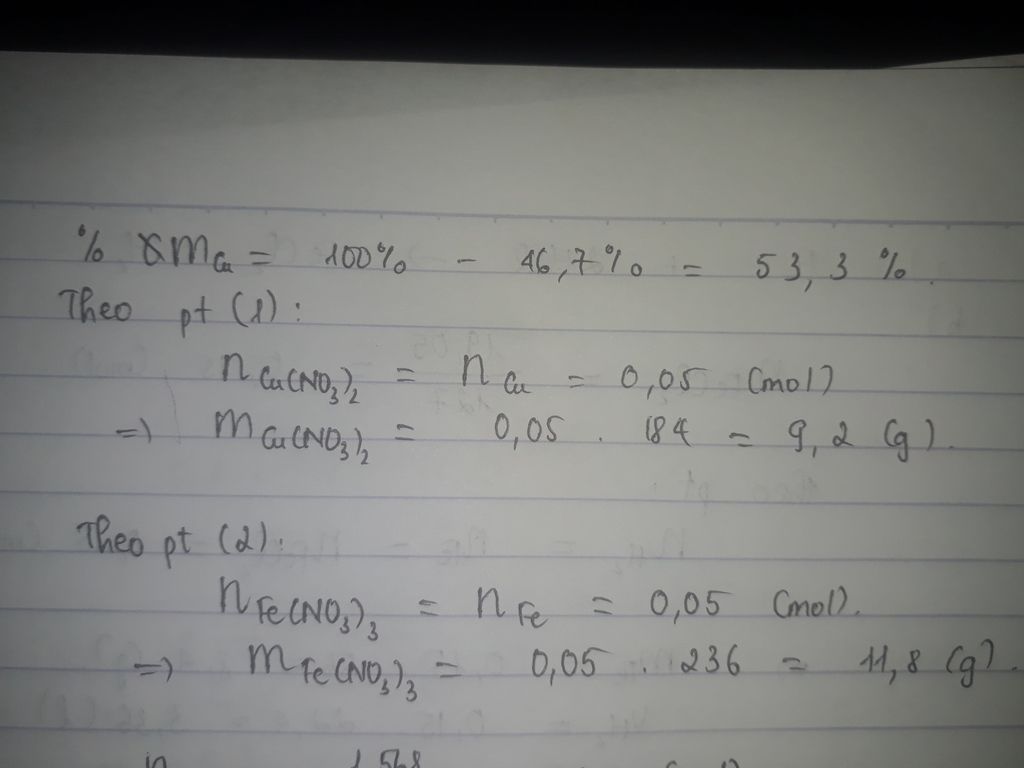 % mCu = 100% - 46,7% = 53,3 %.
Theo pt (1):
nCu(NO3)2 = nCu = 0,05 (mol)
=> mCu(NO3)2 = 0,05 . 184 = 9,2 (g).
Theo pt (2):
nFe(NO3)3 = nFe = 0,05 (mol).
=> mFe(NO3)3 = 0,05 . 236 = 11,8 (g).